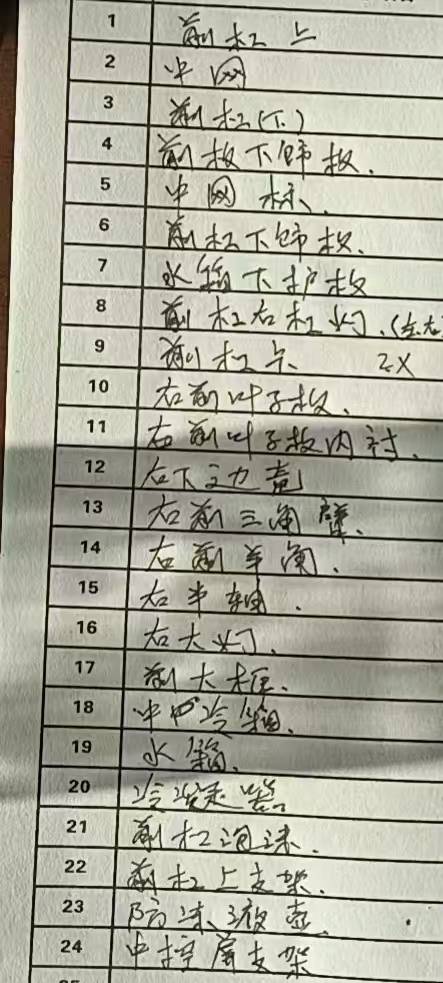 1 前杠上
2 中网
3 前杠(下)
4 前杠下饰板.
5 中网标.
6 前杠下饰板.
7 水箱下护板
8 前杠右杠灯.(左右)
9 前杠卡. 2X
10 右前叶子板.
11 右前叶子板内衬.
12 右下主力臂
13 右前三角臂.
14 右前羊角.
15 右半轴.
16 右大灯.
17 前大框.
18 中冷箱.
19 水箱.
20 冷凝器
21 前杠泡沫.
22 前杠上支架.
23 防冻液壶.
24 中控屏支架